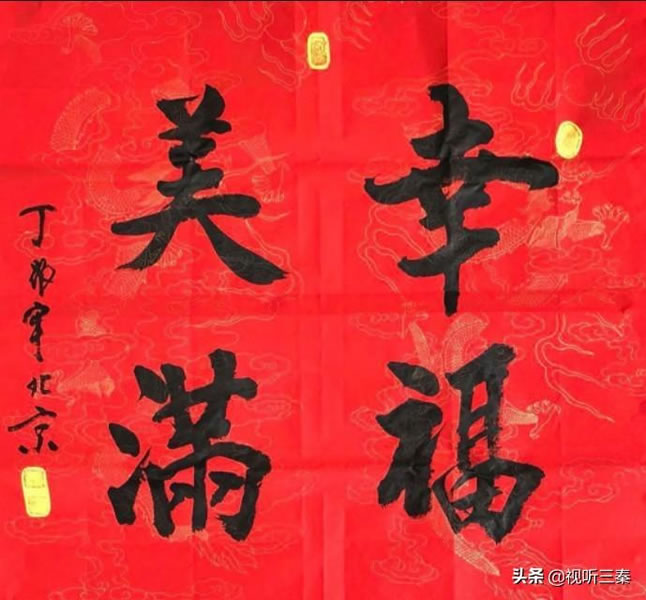 幸福
美滿
丁 北京
头条 @视听三秦